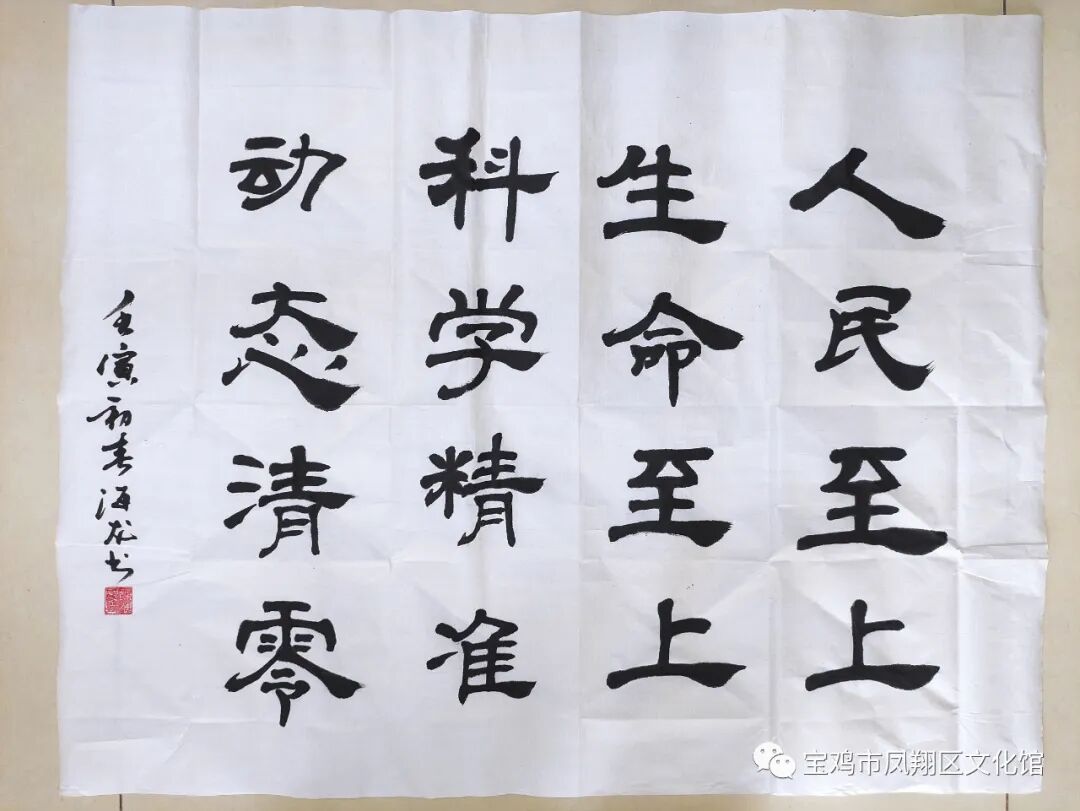 人民至上
生命至上
科学精准
动态清零
壬寅初春海龙书
宝鸡市凤翔区文化馆